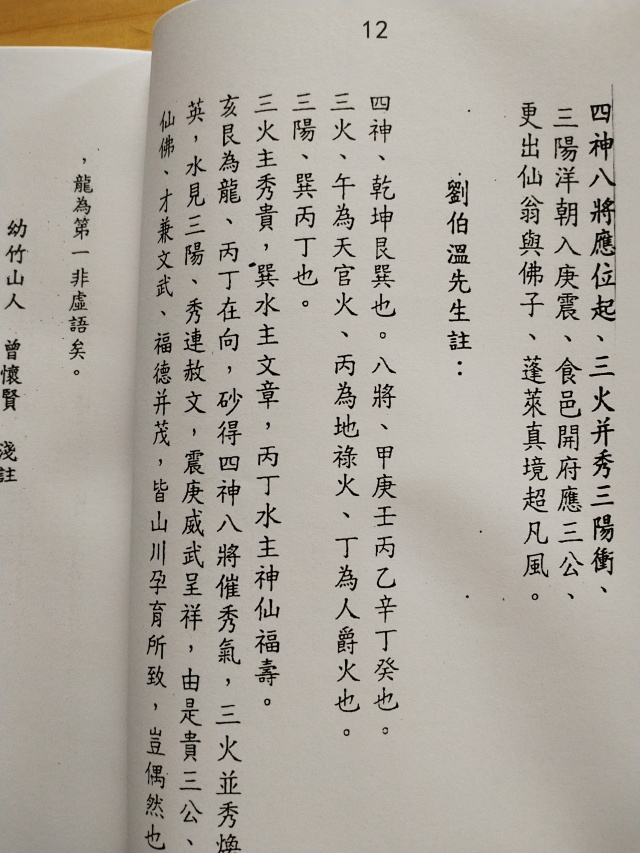 12
四神八將應位起、三火并秀三陽衝、
三陽洋朝入庚震、食邑開府應三公、
更出仙翁與佛子、蓬萊真境超凡風。
劉伯溫先生註：
四神、乾坤艮巽也。八將、甲庚壬丙乙辛丁癸也。
三火、午為天官火、丙為地祿火、丁為人爵火也。
三陽、巽丙丁也。
三火主秀貴，巽水主文章，丙丁水主神仙福壽。
亥艮為龍、丙丁在向，砂得四神八將催秀氣，三火並秀煥
英，水見三陽、秀連赦文，震庚威武呈祥，由是貴三公、
仙佛、才兼文武、福德并茂，皆山川孕育所致，豈偶然也
，龍為第一非虛語矣。
幼竹山人 曾懷賢 淺註